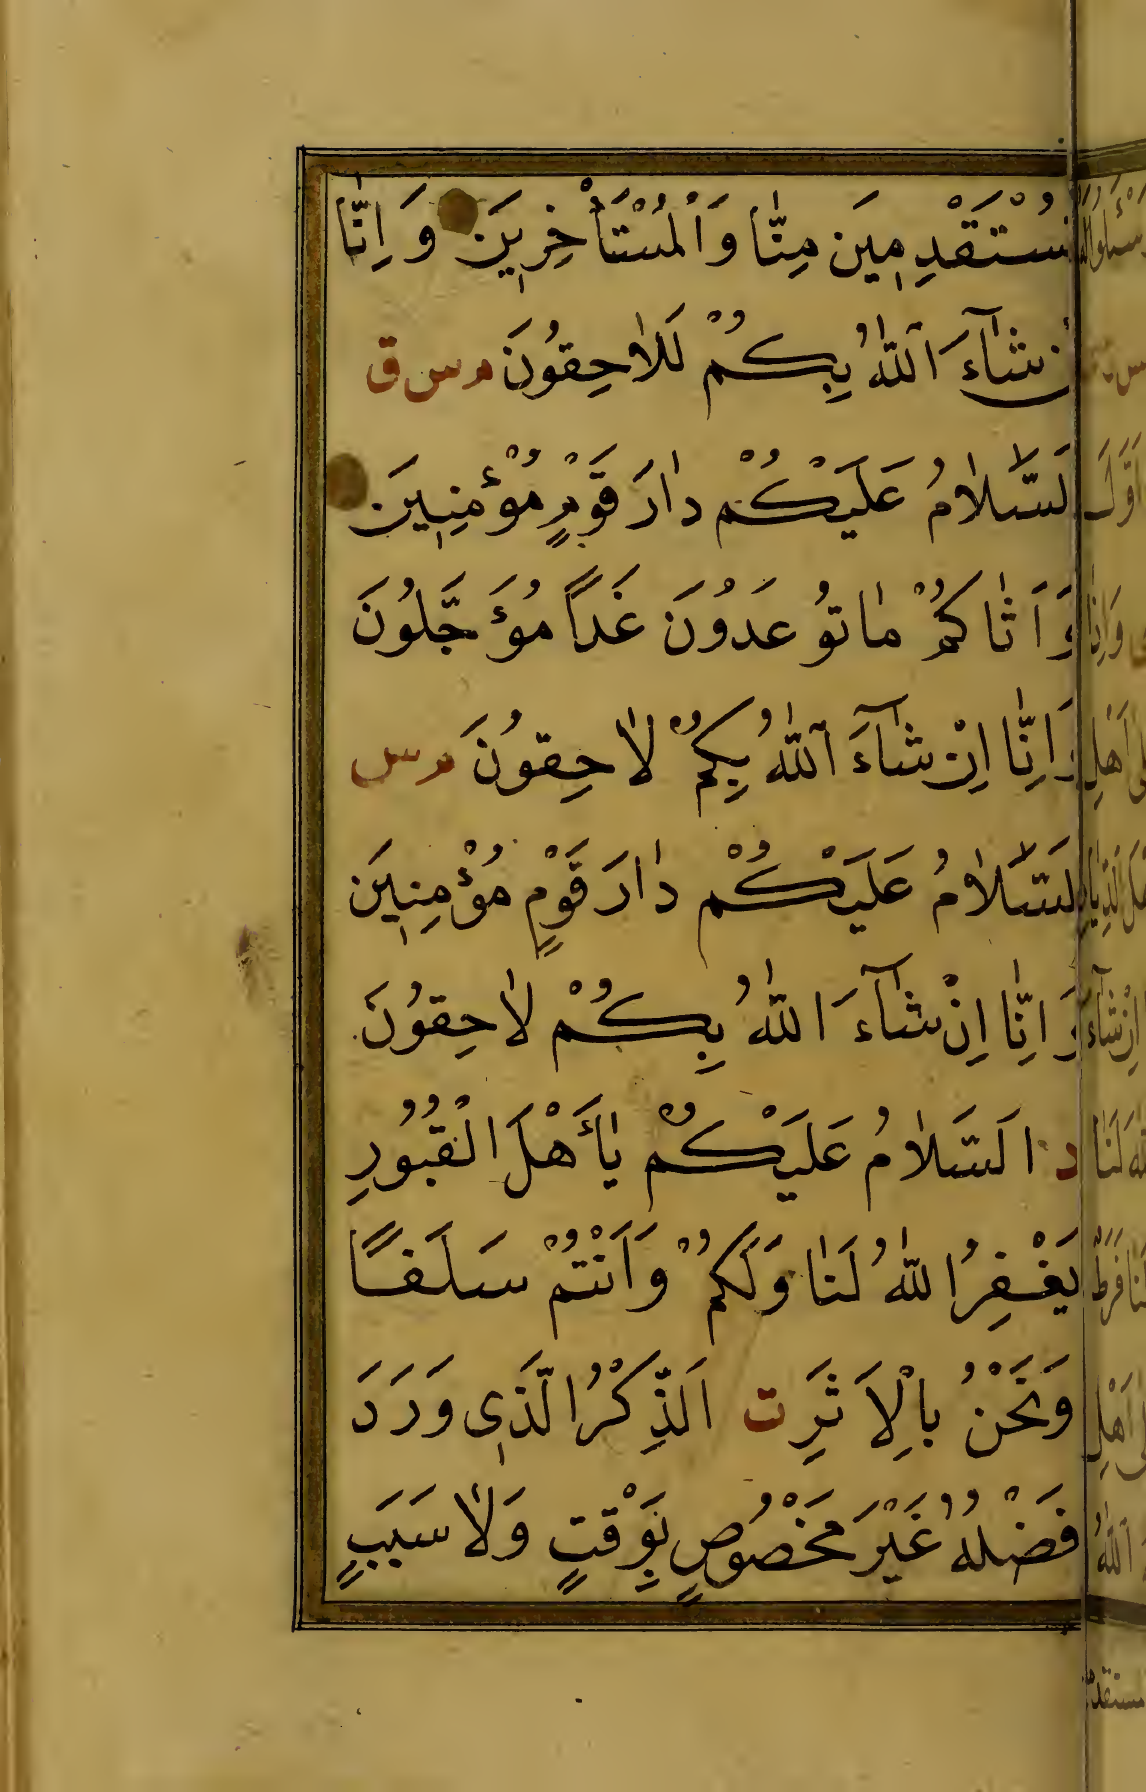 مُسْتَقْدِمِينَ مِنَّا وَالْمُسْتَأْخِرِينَ وَاِنَّا
اِنْ شَآءَ اللّٰهُ بِكُمْ لَلاٰحِقُونَ م س ق
اَلسَّلاٰمُ عَلَيْكُمْ دٰارَ قَوْمٍ مُؤْمِنِينَ
وَاَتٰاكُمْ مٰا تُوعَدُونَ غَداً مُؤَجَّلُونَ
وَاِنّٰا اِنْ شَآءَ اللّٰهُ بِكُمْ لاٰحِقُونَ م س
اَلسَّلاٰمُ عَلَيْكُمْ دٰارَ قَوْمٍ مُؤْمِنِينَ
وَاِنّٰا اِنْ شَآءَ اللّٰهُ بِكُمْ لاٰحِقُونَ
د اَلسَّلاٰمُ عَلَيْكُمْ يٰأَهْلَ الْقُبُورِ
يَغْفِرُ اللّٰهُ لَنٰا وَلَكُمْ وَاَنْتُمْ سَلَفًا
وَنَحْنُ بِالْاَثَرِ ت اَلذِّكْرُ الَّذِي وَرَدَ
فَضْلُهُ غَيْرَ مَخْصُوصٍ بِوَقْتٍ وَلاٰ سَبَبٍ